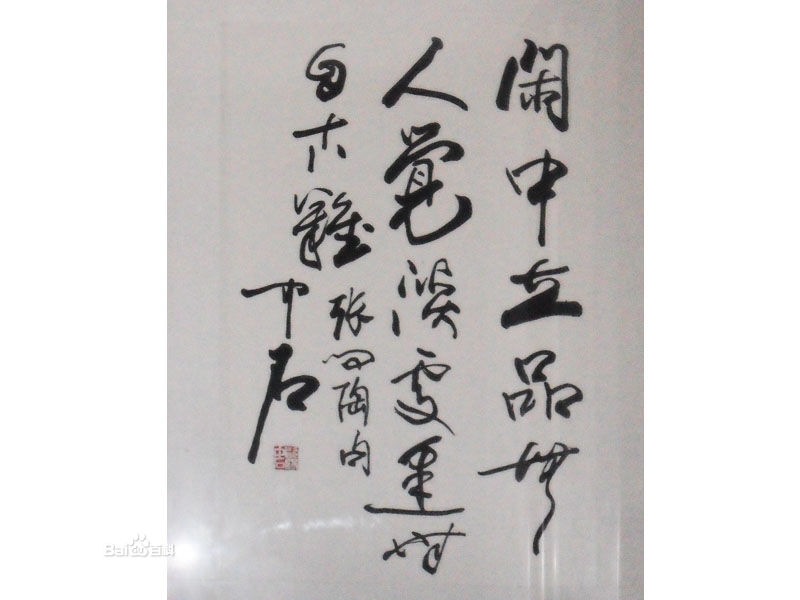 閑中立品無
人覺淡處逢時
自古難
張問陶句
中石
Bai百科